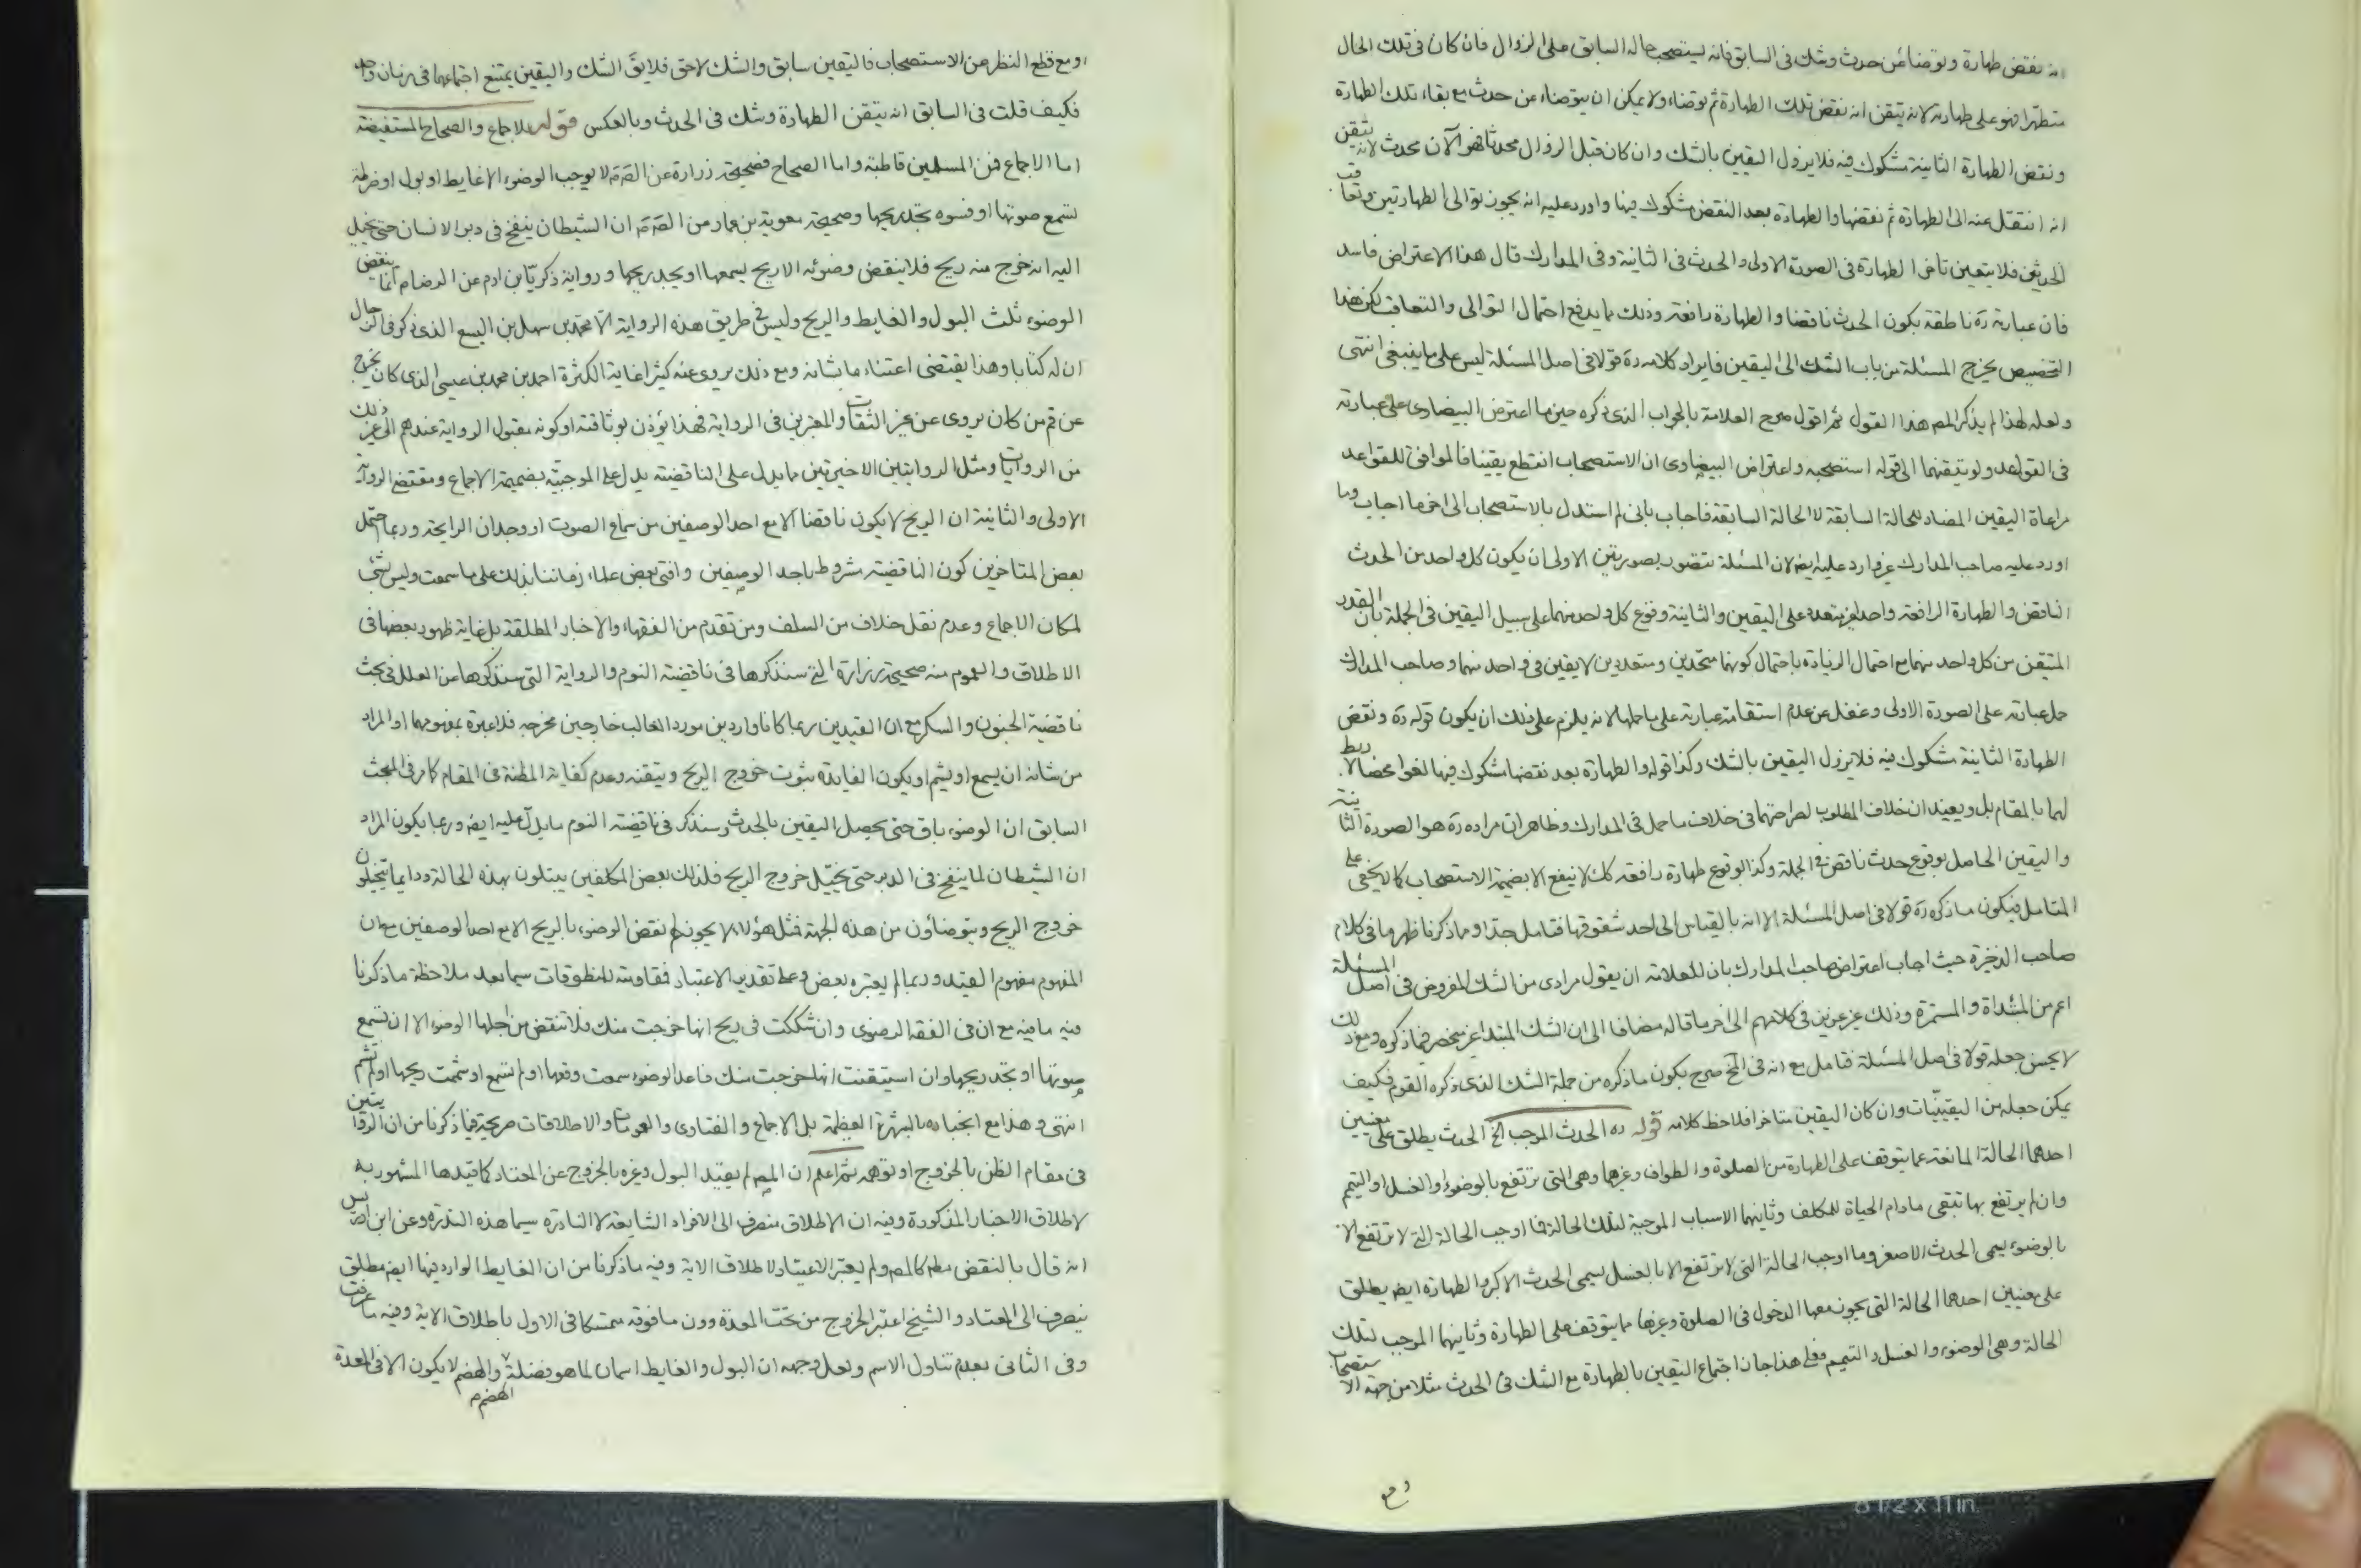 انه نقض طهارة وتوضأ عن حدث وشك فى السابق فانه يستصحب حاله السابق على الزوال فان كان فى تلك الحال
متطهرا فهو على طهارته لانه يتقن انه نقض تلك الطهارة ثم توضاء ولا يمكن ان يتوضاء عن حدث مع بقاء تلك الطهارة
ونقض الطهارة الثانية مشكوك فيه فلا يزول اليقين بالشك وان كان قبل الزوال محدثا فهو الآن محدث لانه يتقن
انه انتقل عنه الى الطهارة ثم نقضها والطهارة بعد النقض مشكوك فيها واورد عليه انه يجوز توالى الطهارتين وتعاقب
الحدثين فلا يتعين تأخر الطهارة فى الصورة الاولى والحدث فى الثانية وفى المدارك قال هذا الاعتراض فاسد
فان عبارته ره ناطقة بكون الحدث ناقضا والطهارة رافعة وذلك مما يدفع احتمال التوالى والتعاقب لكن هذا
التخصيص يخرج المسئلة من باب الشك الى اليقين فايراد كلامه ره قولا فى اصل المسئلة ليس على ما ينبغى انتهى
ولعله لهذا لم يذكر المص هذا القول ثم اقول صرح العلامة بالجواب الذى ذكره حين ما اعترض البيضاوى على عبارته
فى القواعد ولو تيقنهما الى قوله استصحبه واعتراض البيضاوى ان الاستصحاب انقطع يقينا فالموافق للقواعد
مراعاة اليقين المضاد للحالة السابقة لا الحالة السابقة فاجاب بانى لم استدل بالاستصحاب الى اخر ما اجاب وما
اورد عليه صاحب المدارك غير وارد عليه ايضا لان المسئلة تتصور بصورتين الاولى ان يكون كل واحد من الحدث
الناقض والطهارة الرافعة واحدا غير متعدد على اليقين والثانية وقوع كل واحد منهما على سبيل اليقين فى الجملة بان القدر
المتيقن من كل واحد منهما مع احتمال الزيادة باحتمال كونهما متحدين ومتعددين لا يقين فى واحد منهما وصاحب المدارك
حمل عبارته على الصورة الاولى وغفل عن عدم استقامة عبارته على ما حملها لانه يلزم على ذلك ان يكون قوله ره ونقض
الطهارة الثانية مشكوك فيه فلا يزول اليقين بالشك وكذا قوله والطهارة بعد نقضها مشكوك فيها لغوا محضا لا ربط
لهما بالمقام بل ويعيند ان خلاف المطلوب لصراحتهما فى خلاف ما حمل فى المدارك وظاهر ان مراده ره هو الصورة الثانية
واليقين الحاصل بوقوع حدث ناقض فى الجملة وكذا بوقوع طهارة رافعة كك لا ينفع الا بضميمة الاستصحاب كما لا يخفى على
المتامل فيكون ما ذكره ره قولا فى اصل المسئلة الا انه بالقياس الى احد شقوقها فتامل جدا ومما ذكرنا ظهر ما فى كلام
صاحب الذخيرة حيث اجاب اعتراض صاحب المدارك بان للعلامة ان يقول مرادى من الشك المفروض فى اصل المسئلة
اعم من المبتداة والمستمرة وذلك غير عزيز فى كلامهم الى اخر ما قاله مضافا الى ان الشك المبتدا غير منحصر فيما ذكره ومع ذلك
لا يحسن جعله قولا فى اصل المسئلة فتامل مع انه فى الخ صرح بكون ما ذكره من جملة الشك الذى ذكره القوم فكيف
يمكن جعله من اليقينيات وان كان اليقين متاخرا فلاحظ كلامه قوله ره الحدث الموجب الخ الحدث يطلق على معنيين
احدهما الحالة المانعة عما يتوقف على الطهارة من الصلوة والطواف وغيرهما وهى التى ترتفع بالوضوء او الغسل او التيمم
وان لم يرتفع بها تبقى مادام الحياة للمكلف وثانيهما الاسباب الموجبة لتلك الحالة فما اوجب الحالة التى لا ترتفع الا
بالوضوء يسمى الحدث الاصغر وما اوجب الحالة التى لا ترتفع الا بالغسل يسمى الحدث الاكبر والطهارة ايضا يطلق
على معنيين احدهما الحالة التى يجوز معها الدخول فى الصلوة وغيرها مما يتوقف على الطهارة وثانيهما الموجب لتلك
الحالة وهى الوضوء والغسل والتيمم فعلى هذا جاز اجتماع اليقين بالطهارة مع الشك فى الحدث مثلا من جهة الاستصحاب
ومع
ومع قطع النظر عن الاستصحاب فاليقين سابق والشك لاحق فلا يق الشك واليقين يمتنع اجتماعهما فى زمان واحد
فكيف قلت فى السابق انه يتقن الطهارة وشك فى الحدث وبالعكس قوله للاجماع والصحاح المستفيضة
اما الاجماع فمن المسلمين قاطبة واما الصحاح فصحيحة زرارة عن الصم لا يوجب الوضوء الا غايط او بول او ضرطة
تسمع صوتها او فسوه تجد ريحها وصحيحة معوية بن عمار من الصم ان الشيطان ينفخ فى دبر الانسان حتى يخيل
اليه انه خرج منه ريح فلا ينقض وضوئه الا ريح يسمعها او يجد ريحها ورواية ذكريا بن ادم عن الرضا م انما ينقض
الوضوء ثلث البول والغايط والريح وليس فى طريق هذه الرواية الا محمد بن سهل بن اليسع الذى ذكر فى الرجال
ان له كتابا وهذا يقتضى اعتناء ما بشانه ومع ذلك يروى عنه كثيرا غاية الكثرة احمد بن محمد بن عيسى الذى كان يخرج
عن قم من كان يروى عن غير الثقات والمعتبرين فى الرواية فهذا يؤذن بوثاقته او كونه مقبول الرواية عندهم الى غير ذلك
من الروايات ومثل الروايتين الاخيرتين مما يدل على الناقضية يدل على الموجبية بضميمة الاجماع ومقتضى الرواية
الاولى والثانية ان الريح لا يكون ناقضا الا مع احد الوصفين من سماع الصوت او وجدان الرايحة وربما احتمل
بعض المتاخرين كون الناقضية مشروط باحد الوصفين وافتى بعض علماء زماننا بذلك على ما سمعت وليس بشئ
لمكان الاجماع وعدم نقل خلاف من السلف ومن تقدم من الفقهاء والاخبار المطلقة بل غاية ظهور بعضها فى
الاطلاق والعموم منه صحيحة زرارة التى سنذكرها فى ناقضية النوم والرواية التى سنذكرها عن العلل فى بحث
ناقضية الجنون والسكر مع ان القيدين ربما كانا واردين مورد الغالب خارجين مخرجه فلا عبرة بمفهومهما او المراد
من شانه ان يسمع او يشم او يكون الفايدة بثوت خروج الريح ويتقنه وعدم كفاية المظنة فى المقام كما مر فى المبحث
السابق ان الوضوء باق حتى يحصل اليقين بالحدث وسنذكر فى ناقضية النوم ما يدل عليه ايضا وربما يكون المراد
ان الشيطان لما ينفخ فى الدبر حتى يخيل خروج الريح فلذلك بعض المكلفين يبتلون بهذه الحالة ودايما يتخيلون
خروج الريح ويتوضاون من هذه الجهة فمثل هؤلاء لا يجوز لهم نقض الوضوء بالريح الا مع احد الوصفين مع ان
المفهوم مفهوم القيد وربما لم يعتبره بعض وعلى تقدير الاعتبار فمقاومته للمنطوقات سيما بعد ملاحظة ما ذكرنا
فيه ما فيه مع ان فى الفقه الرضوى وان شككت فى ريح انها خرجت منك فلا تنقض من اجلها الوضوء الا ان تسمع
صوتها او تجد ريحها وان استيقنت انها خرجت منك فاعد الوضوء سمعت وقعها او لم تسمع او شممت ريحها او لم تشم
انتهى وهذا مع انجباره بالشهرة العظيمة بل الاجماع والفتاوى والعمومات والاطلاقات صريحة فيما ذكرنا من ان الروايتين
فى مقام الظن بالخروج او توهمه ثم اعلم ان المص لم يقيد البول وغيره بالخروج عن المعتاد كما قيدها المشهور به
لاطلاق الاخبار المذكورة وفيه ان الاطلاق منصرف الى الافراد الشايعة لا النادرة سيما هذه الندرة وعن ابن ادريس
انه قال بالنقض مط كالمص ولم يعتبر الاعتياد لاطلاق الاية وفيه ما ذكرنا من ان الغايط الوارد فيها ايضا مطلق
ينصرف الى المعتاد والشيخ اعتبر الخروج من تحت المعدة دون ما فوقه متمسكا فى الاول باطلاق الاية وفيه ما عرفت
وفى الثانى بعدم تناول الاسم ولعل وجهه ان البول والغايط اسمان لما هو فضلة والهضم لا يكون الا فى المعدة
الهضم م